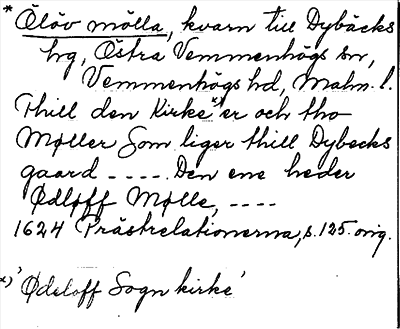 * Ölöv mölla, kvarn till Dybäcks
hg, Östra Vemmenhögs sn,
Vemmenhögs hd, Malm. l.
Thill den Kirke x) er och tho
Møller Som liger thill Dybecks
gaard ---- Den ene heder
Ødløff Mølle, ----
1624 Prästrelationerna, s. 125. orig.
x) 'Ødeloff Sogn kirke'